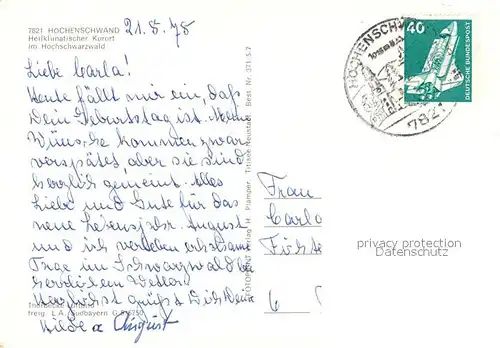 7821 HOCHENSCHWAND
Heilklimatischer Kurort
im Hochschwarzwald
21.8.78
Liebe Carla!
Heute fällt mir ein, daß
Dein Geburtstag ist. Meine
Wünsche kommen zwar
verspätet, aber sie sind
herzlich gemeint. Alles
Liebe und Gute für das
neue Lebensjahr. August
und ich verleben erholsame
Tage im Schwarzwald bei
herrlichem Wetter.
Herzlichst grüßt Dich Deine
Hilde u August
freig. L.A. Südbayern
FOTOPRINT Verlag H. Plamper Titisee-Neustadt Best. Nr.
HOCHENSCHW
7821
40
DEUTSCHE BUNDESPOST
Frau
Carla
6
privacy protection
DatenSchutz